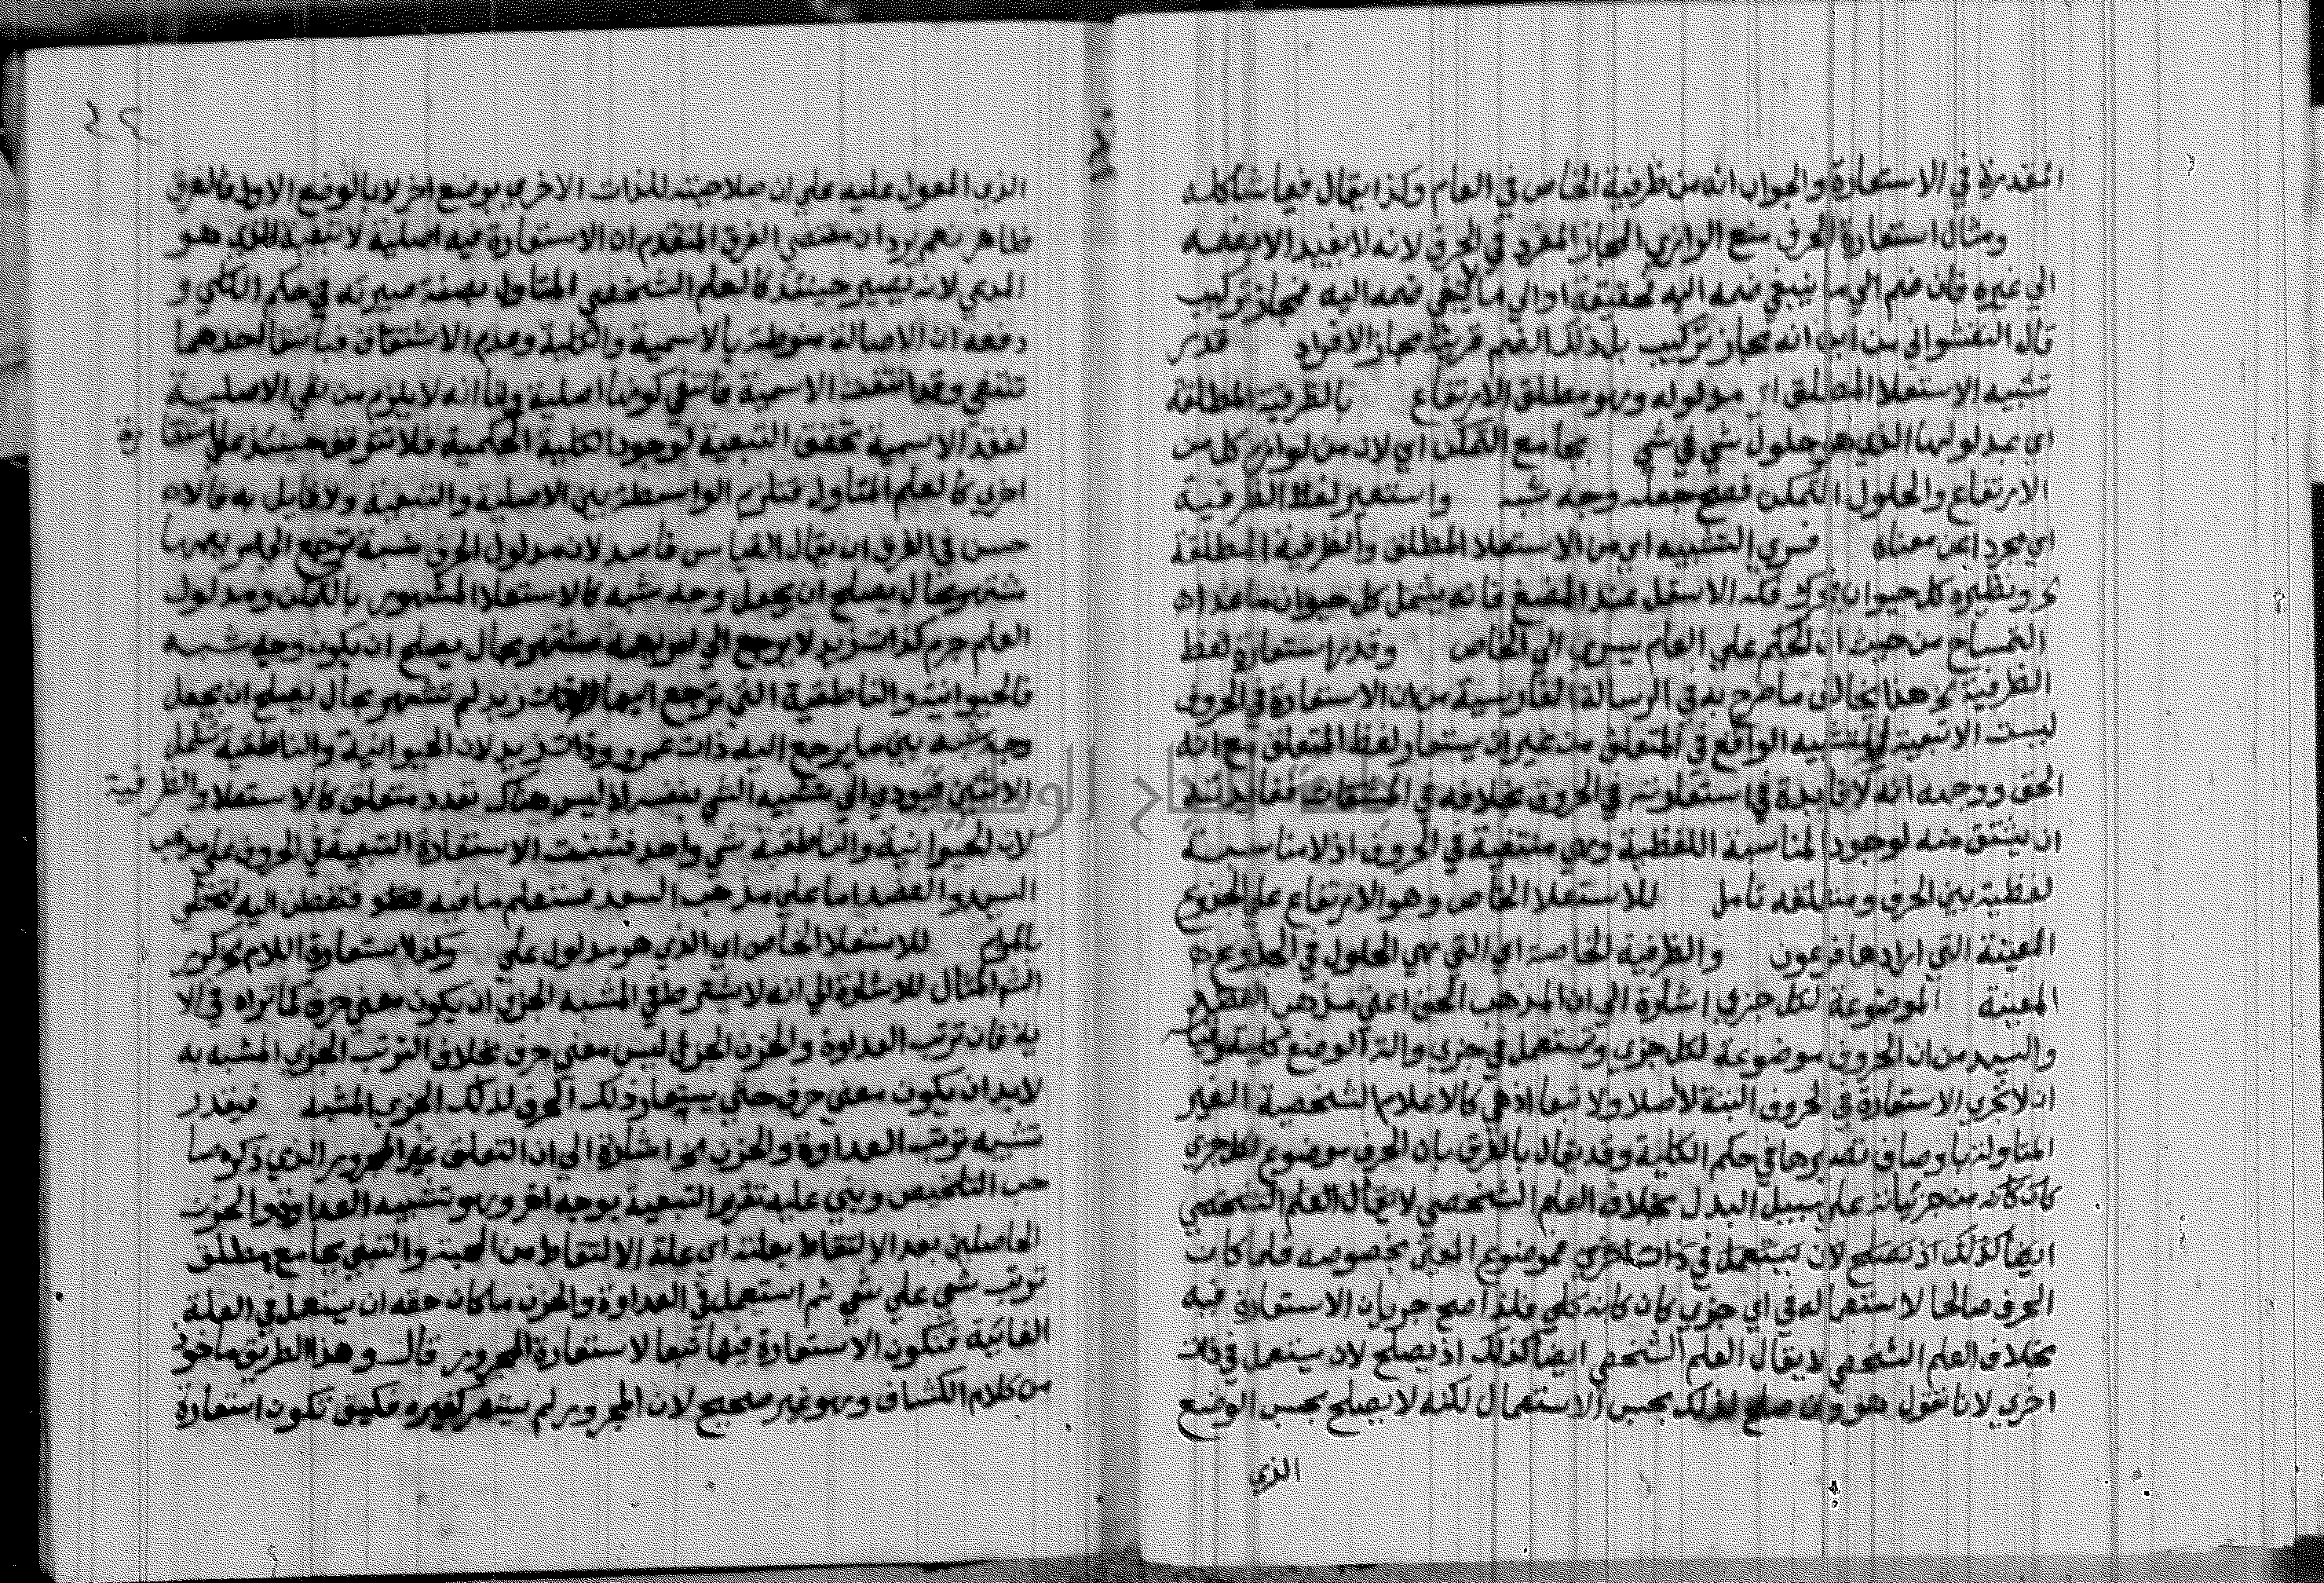 المتقدمة في الاستعارة والجواب انه من ظرفية الخاص في العام وكذا يقال فيما شاكله
ومثال استعارة الحرف منع الرازي المجاز المفرد في الحرف لانه لا يفيد الا بضمه
الي غيره فان ضم الي ما ينبغي ضمه اليه فحقيقة او الي ما لا ينبغي ضمه اليه فمجاز تركيب
قال النقشواني من اين انه مجاز تركيب بل ذلك الضم قرينة مجاز الافراد قدر
تشبيه الاستعلا المطلق اي مدلوله وهو مطلق الارتفاع بالظرفية المطلقة
اي بمدلولها الذي هو حلول شي في شي بجامع التمكن اي لانه من لوازم كل من
الارتفاع والحلول التمكن فصح جعله وجه شبه واستعير لفظ الظرفية
اي مجردا عن معناه فسري التشبيه اي من الاستعلا المطلق والظرفية المطلقة
ونظيره كل حيوان يحرك فكه الاسفل عند المضغ فانه يشمل كل حيوان ما عدا
التمساح من حيث ان الحكم علي العام يسري الي الخاص وقدر استعارة لفظ
الظرفية هذا يخالف ما صرح به في الرسالة الفارسية من ان الاستعارة في الحروف
ليست الا تبعية للتشبيه الواقع في المتعلق من غير ان يستعار لفظ المتعلق مع انه
الحق ووجهه انه لا فايدة في استعارته في الحروف بخلافه في المشتقات ففايدته
ان يشتق منه لوجود المناسبة اللفظية وهي منتفية في الحروف اذ لا مناسبة
لفظية بين الحرف ومتعلقه تأمل للاستعلا الخاص وهو الارتفاع علي الجذوع
المعينة التي ارادها فرعون والظرفية الخاصة اي التي هي الحلول في الجذوع
المعينة الموضوعة لكل جزي اشارة الي ان المذهب الحق اعني مذهب العضد
والسيد من ان الحروف موضوعة لكل جزي وتستعمل في جزي والة الوضع كلية
ان لا تجري الاستعارة في الحروف البتة لا اصلا ولا تبعا اذ هي كالاعلام الشخصية الغير
المتاولة باوصاف تصيرها في حكم الكلية وقد يقال بالفرق بان الحرف موضوع لكل جزي
كان كانه من جزئياته علي سبيل البدل بخلاف العلم الشخصي لا يقال العلم الشخصي
ايضا كذلك اذ يصلح لان يستعمل في ذات اخري بموضوع المعني بخصوصه فلما كان
الحرف صالحا لاستعماله في اي جزي كان كانه كلي فلذا صح جريان الاستعارة فيه
بخلاف العلم الشخصي لا يقال العلم الشخصي ايضا كذلك اذ يصلح لان يستعمل في ذات
اخري لانا نقول هو وان صلح لذلك بحسب الاستعمال لكنه لا يصلح بحسب الوضع
الذي
الذي المعول عليه علي ان صلاحيته للذات الاخري بوضع اخر لا بالوضع الاول فالفرق
ظاهر نعم يرد ان مقتضي الفرق المتقدم ان الاستعارة فيه اصلية لا تبعية الذي هو
المدعي لانه يصير حينئذ كالعلم الشخصي المتاول بصفة صيرته في حكم الكلي و
دفعه ان الاصالة منوطة بالاسمية والكلية وعدم الاشتقاق فبانتفا احدهما
تنتفي وقد انتفت الاسمية فانتفي كونها اصلية ولما انه لا يلزم من نفي الاصلية
لفقد الاسمية تحقق التبعية لوجود الكلية الحكمية فلا تتوقف حينئذ علي استعارة
اخري كالعلم المتاول فتلزم الواسطة بين الاصلية والتبعية ولا قايل به فالا
حسن في الفرق ان يقال القياس فاسد لان مدلول الحرف نسبة ترجع الي امر بجهة
شتهر بحال يصلح ان يجعل وجه شبه كالاستعلا المشهور بالتمكن ومدلول
العلم جرم كذات زيد لا يرجع الي امر بجهة مشتهر بحال يصلح ان يكون وجه شبه
فالحيوانية والناطقية التي ترجع اليها ذات زيد لم تشتهر بحال يصلح ان يجعل
وجه شبه بين ما يرجع اليه ذات عمرو وذات زيد لان الحيوانية والناطقية تشمل
الاثنين فيودي الي تشبيه الشي بنفسه اذ ليس هناك تعدد متعلق كالاستعلا والظرفية
لان الحيوانية والناطقية شي واحد فثبتت الاستعارة التبعية في الحروف علي مذهب
السيد والعضد اما علي مذهب السعد فستعلم ما فيه فتفطن اليه تحظي
بالمرام للاستعلا الخاص اي الذي هو مدلول علي وكذا استعارة اللام
المثال للاشارة الي انه لا يشترط في المشبه الجزي ان يكون معني حرف كما تراه في الا
ية فان ترتب العداوة والحزن الجزي ليس معني حرف بخلاف الترتب الجزي المشبه به
لابد ان يكون معني حرف حتي يستعار ذلك الحرف لذلك الجزي المشبه فيقدر
تشبيه ترتب العداوة والحزن اشارة الي ان التعلق غير المجرور الذي ذكره صا
حب التلخيص وبني عليه تقرير التبعية بوجه اخر وهو تشبيه العداوة والحزن
الحاصلين بعد الالتقاط بعلته اي علة الالتقاط من المحبة والتبني بجامع مطلق
ترتب شي علي شي ثم استعمل في العداوة والحزن ما كان حقه ان يستعمل في العلة
الغائية فتكون الاستعارة فيها تبعا لاستعارة المجرور قال وهذا الطريق ماخوذ
من كلام الكشاف وهو غير صحيح لان المجرور لم يستعر لغيره فكيف تكون استعارة